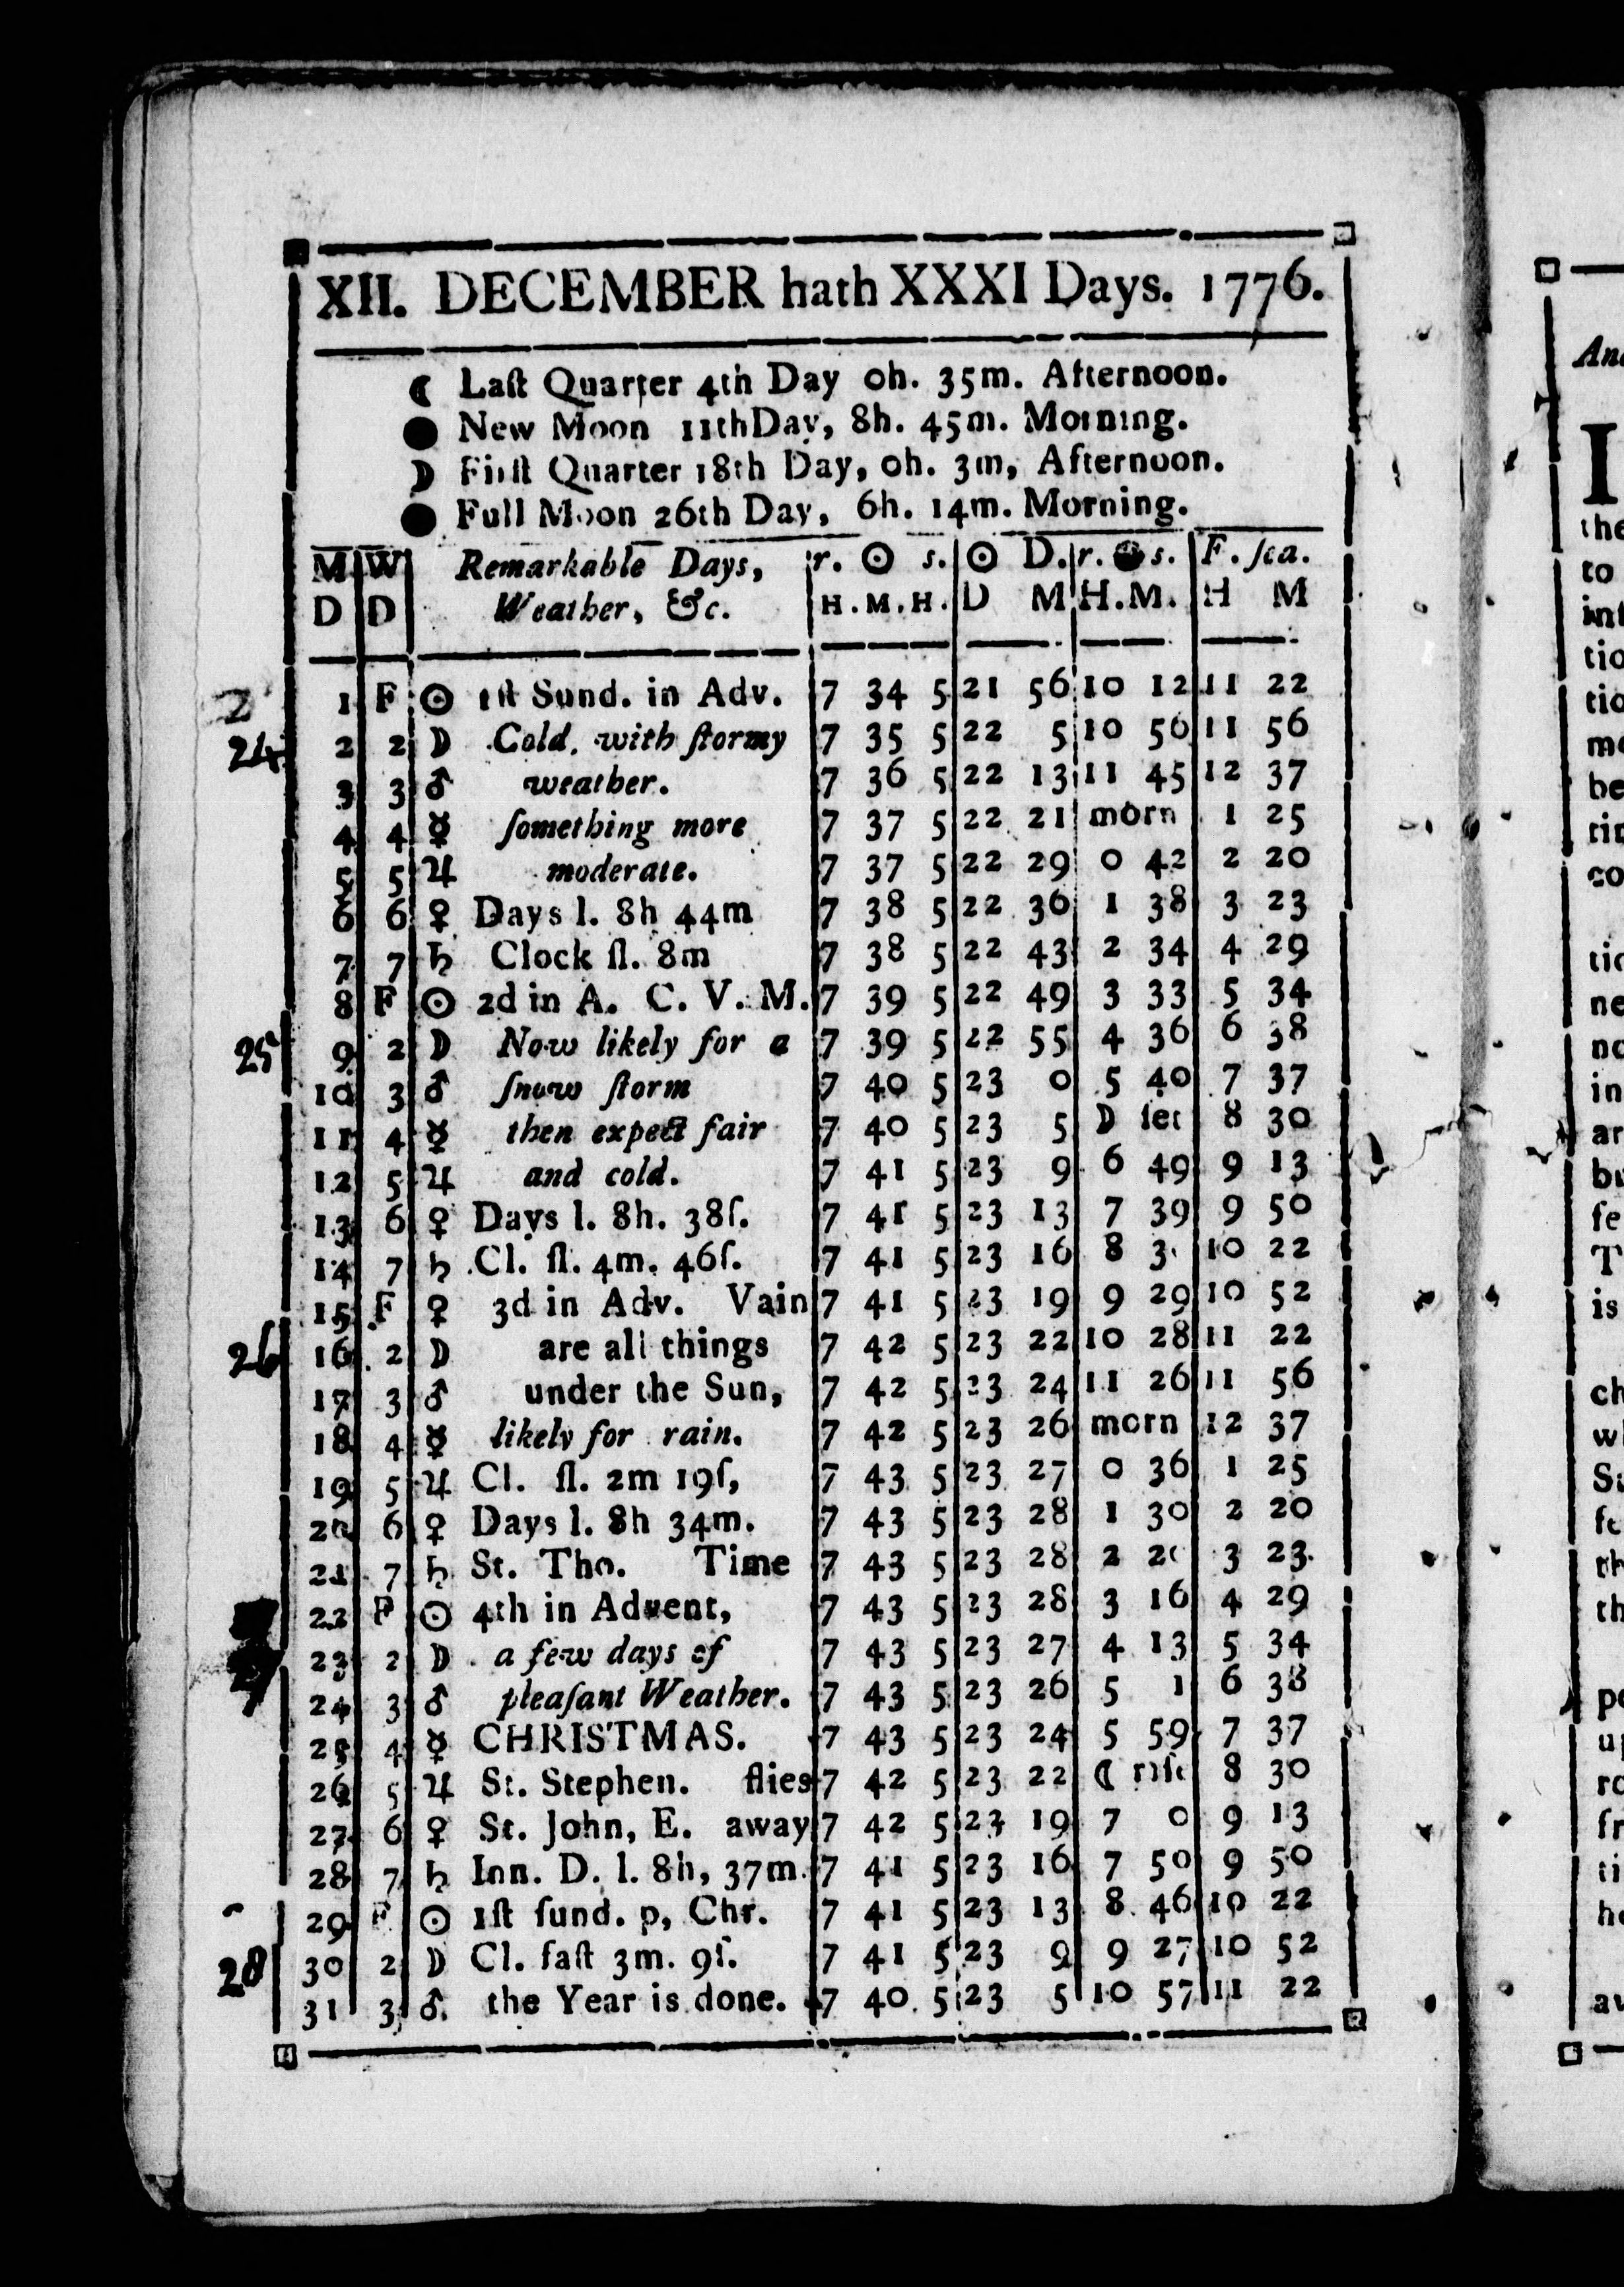 XII. DECEMBER hath XXXI Days. 1776.
☾ Laſt Quarter 4th Day 0h. 35m. Afternoon.
● New Moon 11thDay, 8h. 45m. Morning.
☽ Firſt Quarter 18th Day, 0h. 3m, Afternoon.
● Full Moon 26th Day, 6h. 14m. Morning.
M W Remarkable Days, r. ☉ s. ☉ D. r. ● s. F. ſea.
D D Weather, &c. H. M. H. D M H. M. H M
2
1 F ☉ 1ſt Sund. in Adv. 7 34 5 21 56 10 12 11 22
24 2 2 ☽ Cold, with ſtormy 7 35 5 22 5 10 56 11 56
3 3 ♂ weather. 7 36 5 22 13 11 45 12 37
4 4 ☿ ſomething more 7 37 5 22 21 morn 1 25
5 5 ♃ moderate. 7 37 5 22 29 0 42 2 20
6 6 ♀ Days l. 8h 44m 7 38 5 22 36 1 38 3 23
7 7 ♄ Clock ſl. 8m 7 38 5 22 43 2 34 4 29
8 F ☉ 2d in A. C. V. M. 7 39 5 22 49 3 33 5 34
25 9 2 ☽ Now likely for a 7 39 5 22 55 4 36 6 38
10 3 ♂ ſnow ſtorm 7 40 5 23 0 5 40 7 37
11 4 ☿ then expect fair 7 40 5 23 5 ☽ ſet 8 30
12 5 ♃ and cold. 7 41 5 23 9 6 49 9 13
13 6 ♀ Days l. 8h. 38ſ. 7 41 5 23 13 7 39 9 50
14 7 ♄ Cl. ſl. 4m. 46ſ. 7 41 5 23 16 8 10 22
15 F ♀ 3d in Adv. Vain 7 41 5 23 19 9 29 10 52
26 16 2 ☽ are all things 7 42 5 23 22 10 28 11 22
17 3 ♂ under the Sun, 7 42 5 23 24 11 26 11 56
18 4 ☿ likely for rain. 7 42 5 23 26 morn 12 37
19 5 ♃ Cl. ſl. 2m 19ſ, 7 43 5 23 27 0 36 1 25
20 6 ♀ Days l. 8h 34m. 7 43 5 23 28 1 30 2 20
21 7 ♄ St. Tho. Time 7 43 5 23 28 2 3 23
22 F ☉ 4th in Advent, 7 43 5 23 28 3 16 4 29
23 2 ☽ a few days of 7 43 5 23 27 4 13 5 34
24 3 ♂ pleaſant Weather. 7 43 5 23 26 5 1 6 38
25 4 ☿ CHRISTMAS. 7 43 5 23 24 5 59 7 37
26 5 ♃ St. Stephen. flies 7 42 5 23 22 ☾ riſe 8 30
27 6 ♀ St. John, E. away 7 42 5 23 19 7 0 9 13
28 7 ♄ Inn. D. l. 8h, 37m. 7 41 5 23 16 7 50 9 50
29 F ☉ 1ſt ſund. p, Chr. 7 41 5 23 13 8 46 10 22
28 30 2 ☽ Cl. faſt 3m. 9ſ. 7 41 5 23 9 9 27 10 52
31 3 ♂ the Year is done. 7 40 5 23 5 10 57 11 22
I